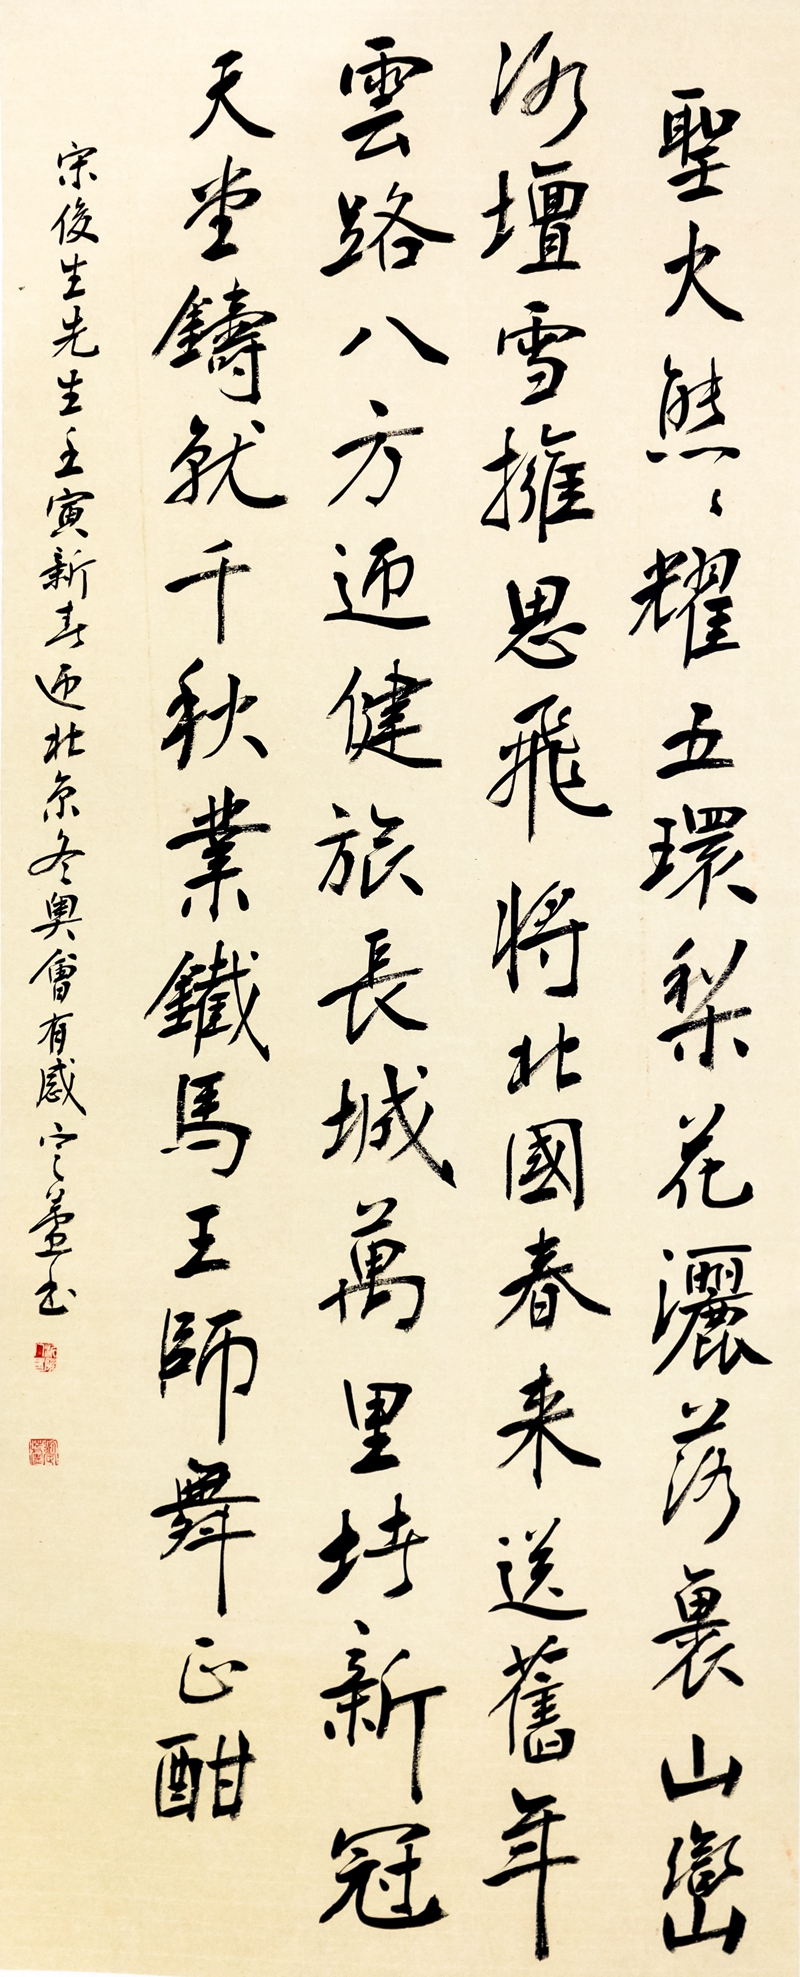 聖火熊〻耀五環梨花灑落裹山巒
冰壇雪擁思飛將北國春来送舊年
雲路八方迎健旅長城萬里堵新冠
天堂鑄就千秋業鐵馬王師舞正酣
宋俊生先生壬寅新春迎北京冬奧會有感书